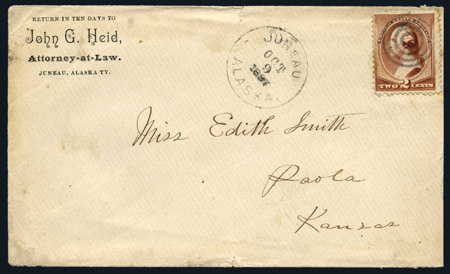 RETURN IN TEN DAYS TO
John G. Heid,
Attorney-at-Law.
JUNEAU, ALASKA TY.
JUNEAU
OCT
9
1887
ALASKA.
TWO 2 CENTS
Miss Edith Smith
Paola
Kansas